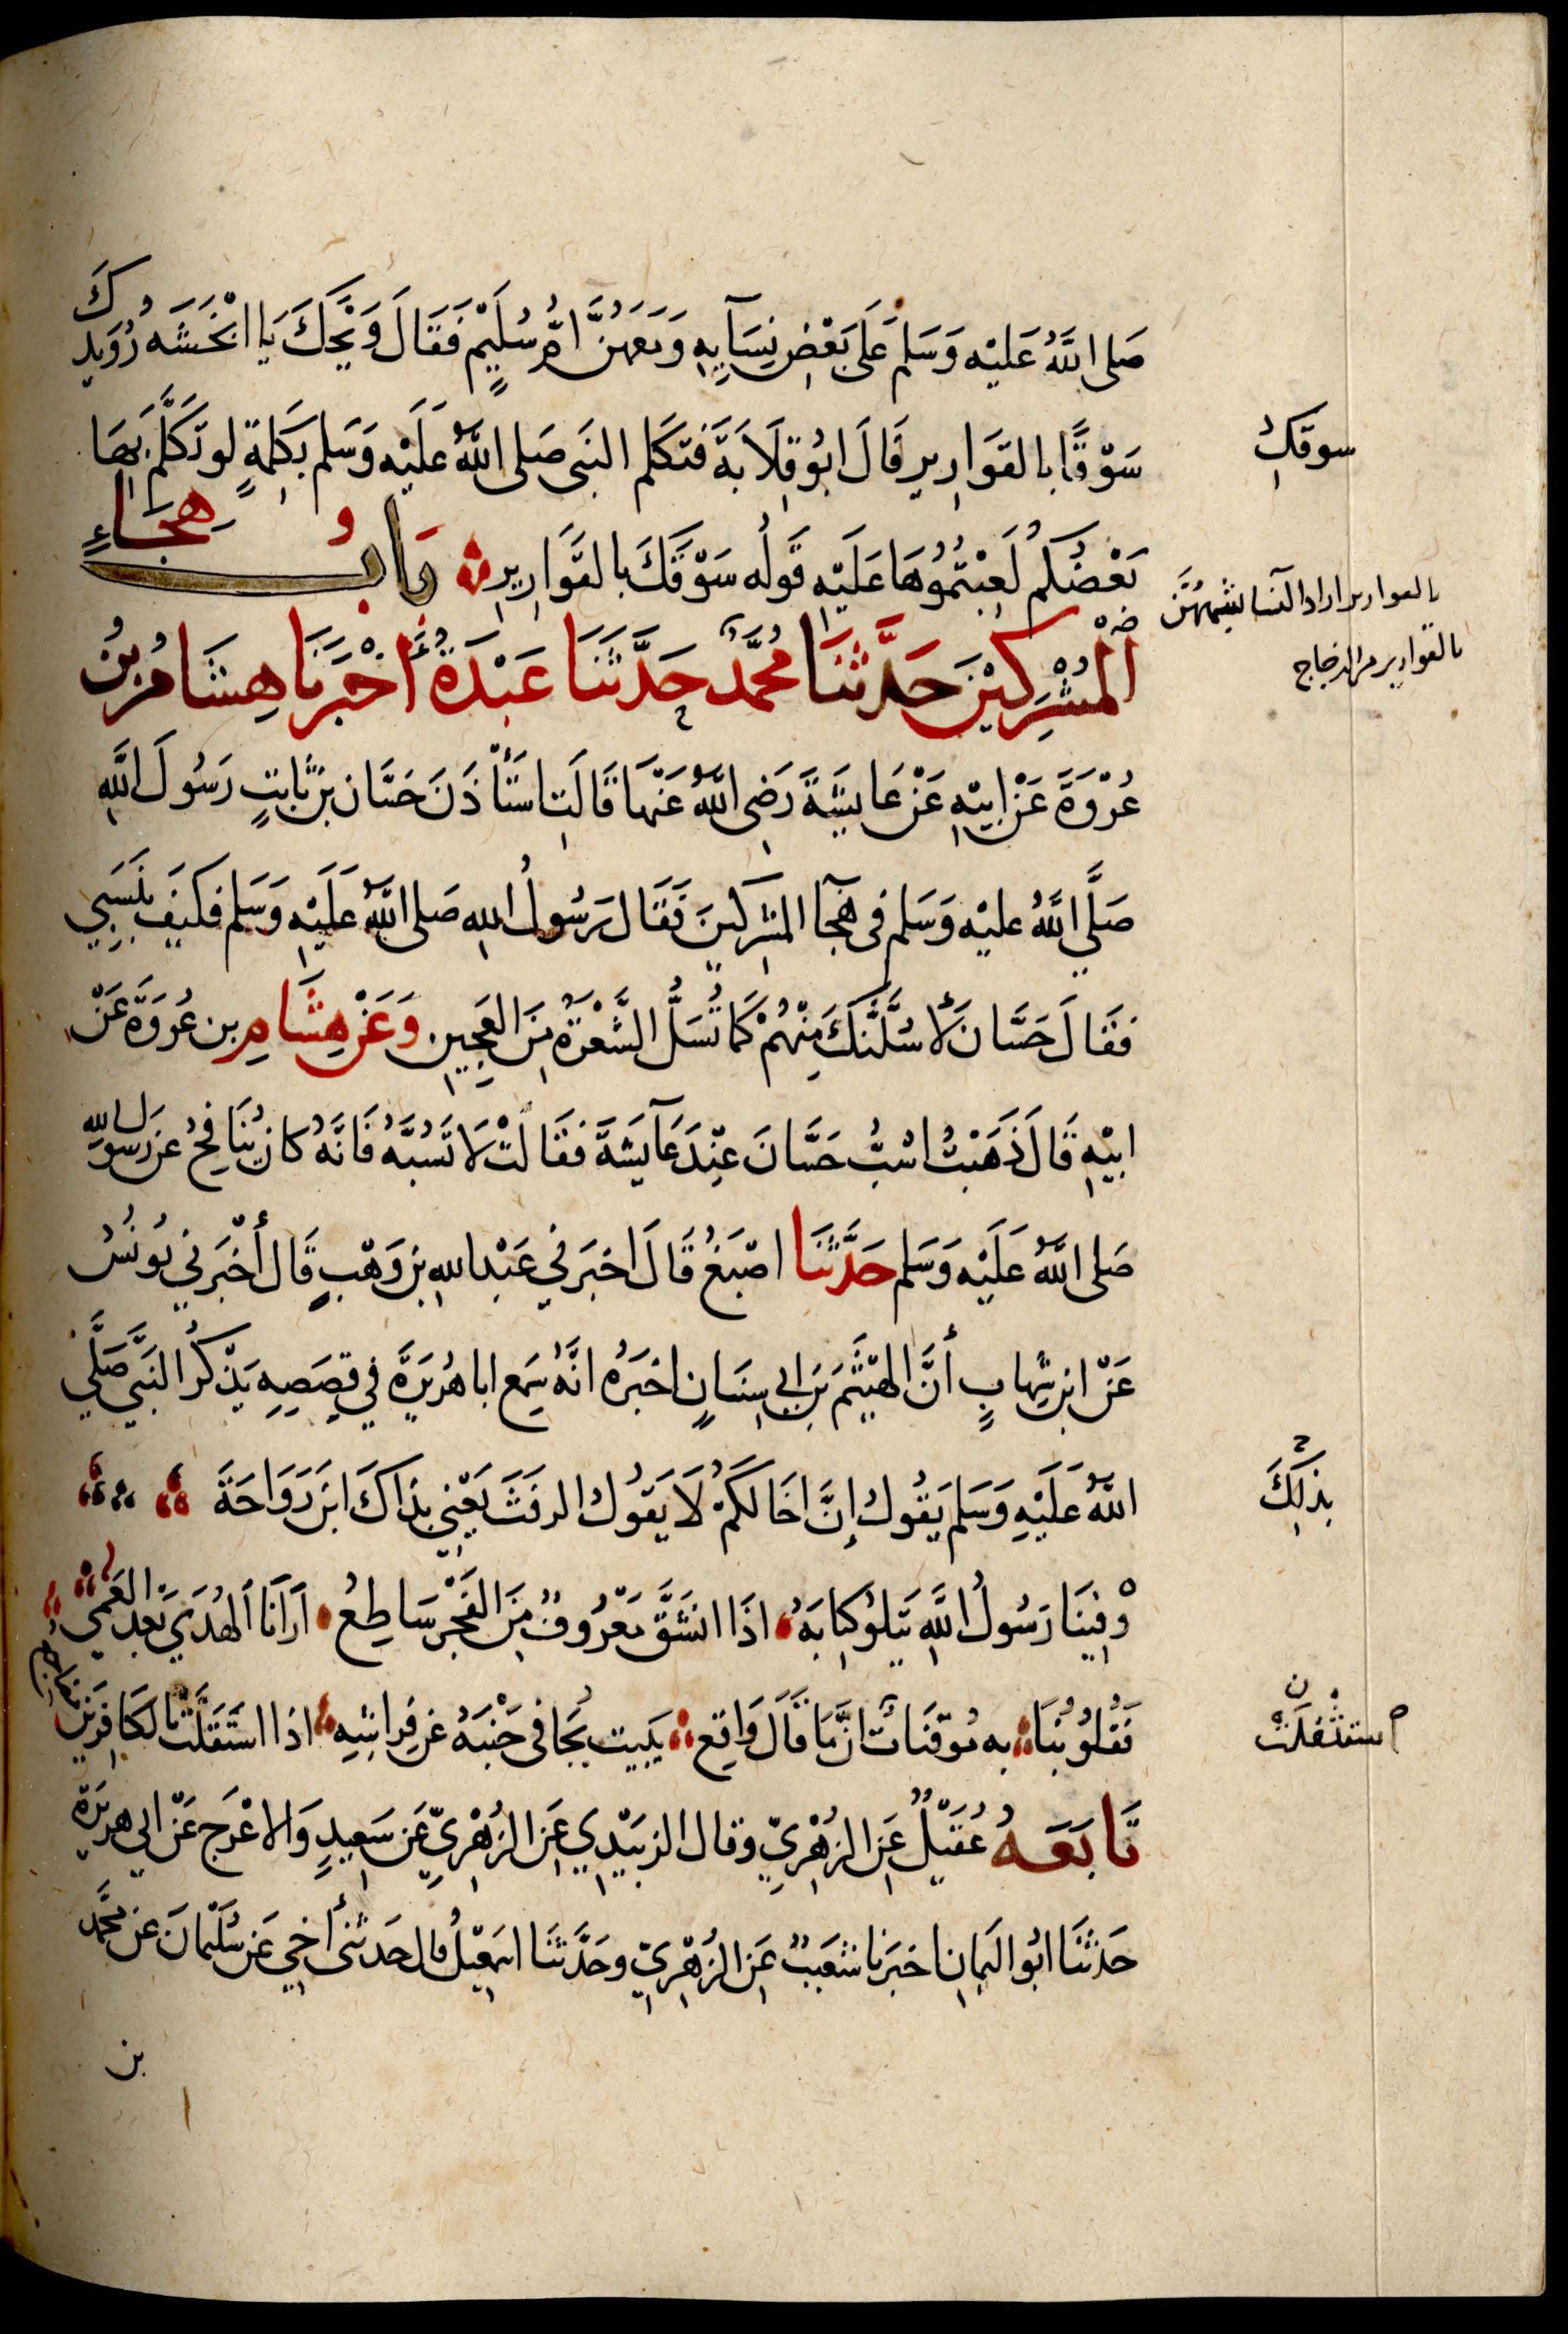 صَلى اللَّهُ عَليْه وَسَلم عَلَى بَعْضِ نِسَآيِهِ وَمَعَهُنَّ امُّ سُلَيْمٍ فَقَالَ وَيْحَكَ يَا انْجَشَه رُوَيدكَ
سَوْقًا بالقوَارِيرِ قَالَ ابُو قِلَابَةَ فَتكَلم النَبى صَلى اللَّهُ عَلَيْهِ وَسَلم بكَلِمَةٍ لو تَكَلَّمَ بِهَا
بَعْضُكُمْ لَعِبْتُمُوُهَا عَلَيْهِ قَولُه سَوْقَكَ بالقَوارِيرِ بَابُ هِجَاءِ
المُشْرِكِيْنَ حَدَّثَنَا مُحَمَّدٌ حَدَّثَنَا عَبْدَةُ أَخْبَرَنَا هِشَامُ بنُ
عُرْوَةَ عَنْ ابِيْهِ عَنْ عَايِشَةَ رَضِى اللَّهُ عَنْهَا قَالَتِ استَأْذَنَ حَسَّان بنُ ثَابِتٍ رَسُولَ اللَّهِ
صَلَّي اللَّهُ عليْه وَسَلم فى هِجَآ المشرِكينَ فَقَالَ رَسُولُ اللهِ صَلى اللَّهُ عَلَيْهِ وَسَلم فكَيفَ بنَسَبِي
فَقَالَ حَسَّان لَأَسُلَّنَّكَ مِنْهُمْ كَمَا تُسَلُّ الشَّعْرَةُ مِنَ العَجِينِ وَعَنْ هِشَامِ بن عُروَةَ عَنْ
ابيْهِ قَالَ ذَهَبْتُ اسُبُّ حَسَّانَ عِنْدَ عَآيَشَةَ فَقَالَتْ لَا تَسُبَّهُ فَانَّهُ كانَ يُنَافِحُ عَن رَسُولِ اللهِ
صَلى اللَّهُ عَلَيْه وَسَلم حَدَّثَنَا اصْبَغُ قَالَ اخبَرَني عَبْدُ اللهِ بن وَهْبٍ قَال أَخْبَرَني يُونُسُ
عَنْ ابنِ شِهَابٍ أَنَّ الهَيْثَمَ بنَ ابي سِنَانٍ اخبَرَهُ انَّهُ سَمِعَ ابا هُرَيرَةَ في قِصَصِهِ يَذْكُرُ النَبَّي صَلَّي
اللَّهُ عَلَيْهِ وَسَلم يَقُولُ إنَّ اخَا لَكُمْ لَا يَقوُلُ الرفَثَ يَعْنِي بذَاكَ ابنَ رَوَاحَةَ
وْفِيْنَا رَسُولُ اللَّهِ يَتلوُ كِتَابَهُ اذَا انشَقَّ مَعْرُوفٌ مِنَ الفَجْرِ سَاطِعُ ارَانَا الهُدَي بَعد العَمي
فَقُلُوُبُنَا به مُوقِنَاتٌ انَّ مَا قَالَ وَاقِع يَبيت يُجَافى جَنْبَهُ عن فِرَاشِهِ اذا استَثقَلَتْ بالكَافِرينَ
المضاجع
تَابَعَهُ عُقَيْلٌ عَنِ الزُهْرِيّ وقال الزبَيْدِي عَنِ الزُهْرِيِّ عَن سَعِيدٍ وَالاعْرَجِ عَنْ ابي هريرَةَ
حَدثَنَا ابُو اليَمانِ اخبَرَنَا شُعَيبٌ عَنِ الزُهْرِيّ وحَدَّثَنَا اسمعِيْلُ قال حَدثنى أَخِي عَن سُلَيْمانَ عن مُحَمَّد
بن
سوقكَ
بالقوارير اراد النسا يشبههُنَّ
بالقوارير من الزجاج
بذلكَ
استثقلتْ